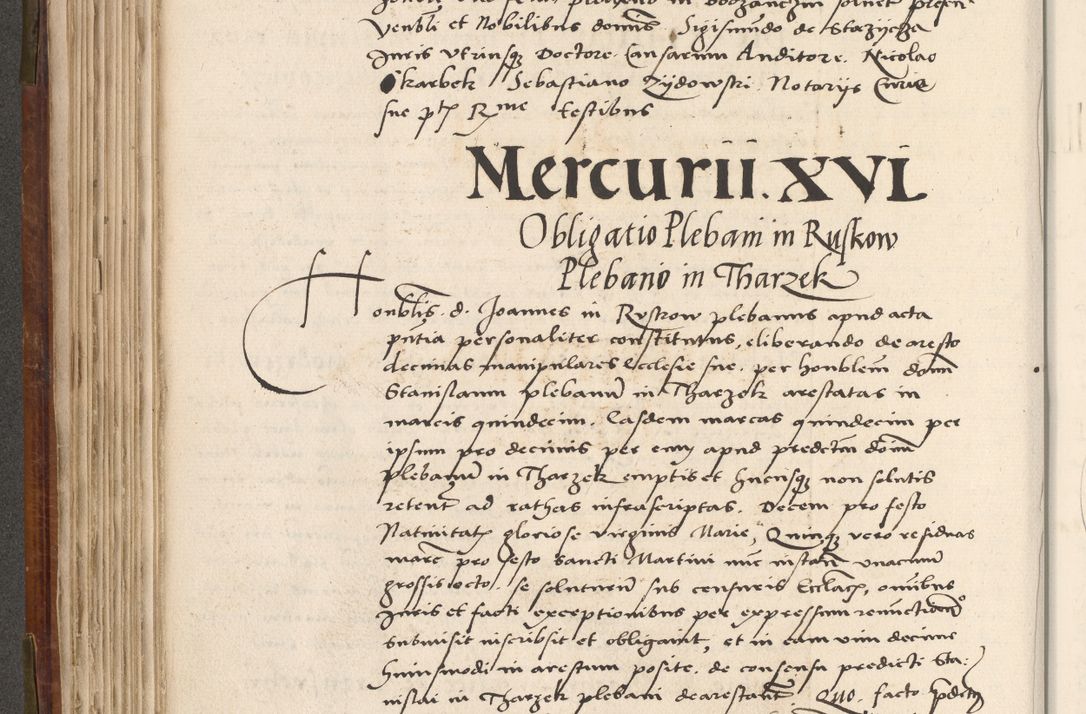 Venbli et Nobilibus domīs Sigismundo de Stazycza
Juris Utriusqȝ Doctore Causarum Auditore. Nicolao
Skarbek Sebastiano Zydowski Notarijs Curie
sue pt R̄me testibus
Mercurii. XVI
Obligatio Plebani in Ruskow
Plebano in Tharzek
Honblis. d. Joannes in Ruskow plebanus apud acta
pn̄tia personaliter constitutus, eliberando de aresto
decimas manipulares Ecclesie sue. per honblem domū
Stanislaum plebanū in Tharzek arestatas in
marcis quindecim. Easdem marcas quindecim per
ipsum pro decimis per eum apud predictū domū
plebanū in Tharzek emptis et hucusqȝ non solutis
retent ad rathas infrascriptas. Decem pro festo
Natiuitatis gloriose virginis Marie, Quinqȝ vero residuas
marc pro festo Sancti Martini nūc instañ unacum
grossis octo. se soluturū sub censuris Ecclāꝝ, omībus
Juris et facti exceptionibus per expressum renūctiatio
submisit inscribsit et obligauit, et in eam vim decime
huiusmodi in arestum posite. de consensu predicti Sta:
nislai in Tharzek plebani dearestant. Quo. facto pdct